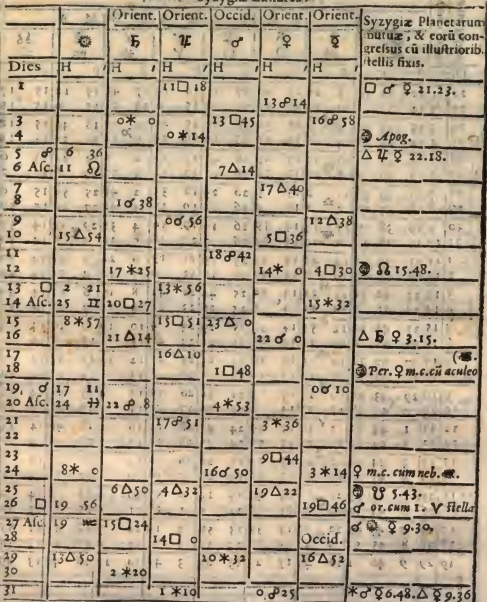 Orient. Orient. Occid. Orient. Orient. Syzygiæ Planetarum
☉ ♄ ♃ ♂ ♀ ☿ mutuæ, & eorū con-
gressus cū illustriorib.
Dies H ′ H ′ H ′ H ′ H ′ H ′ stellis fixis.
1 11□18 □ ♂ ☿ 21.23.
13☍14
3 0✶ 0 13□45 16☍58
4 0✶14 Apog.
5 ☍ 6 36 △ ♃ ☿ 22.18.
6 Asc. 11 ♌ 7△14
7 17△40
8 1☌38
9 0☌56 12△38
10 15△54 5□36
11 18☍42
12 17✶25 14✶ 0 4□30 ☊ 15.48.
13 □ 2 21 13✶56
14 Asc. 25 ♊ 20□27 15✶32
15 8✶57 15□51 23△ 0
16 21△14 22☌ 0 △ ♄ ♀ 3.15.
17 16△10
18 1□48 Per. ♀ m.c.cū aculeo
19 ☌ 17 11 0☌10
20 Asc. 24 ♓ 22☍ 8 4✶53
21 17☍51 3✶36
22
23 9□44
24 8✶ 0 16☌50 3✶14 ♀ m.c.cum neb.
25 6△50 4△32 19△22 ☋ 5.43.
26 □ 19 56 19□46 ♂ or.cum 1. ♈ stella
27 Asc. 19 ♒ 15□24 ☌ ☉ ☿ 9.30.
28 14□ 0 Occid.
29 13△50 10✶32 16△52
30 2✶20
31 1✶10 0☍25 ✶♂☿6.48.△♀9.36